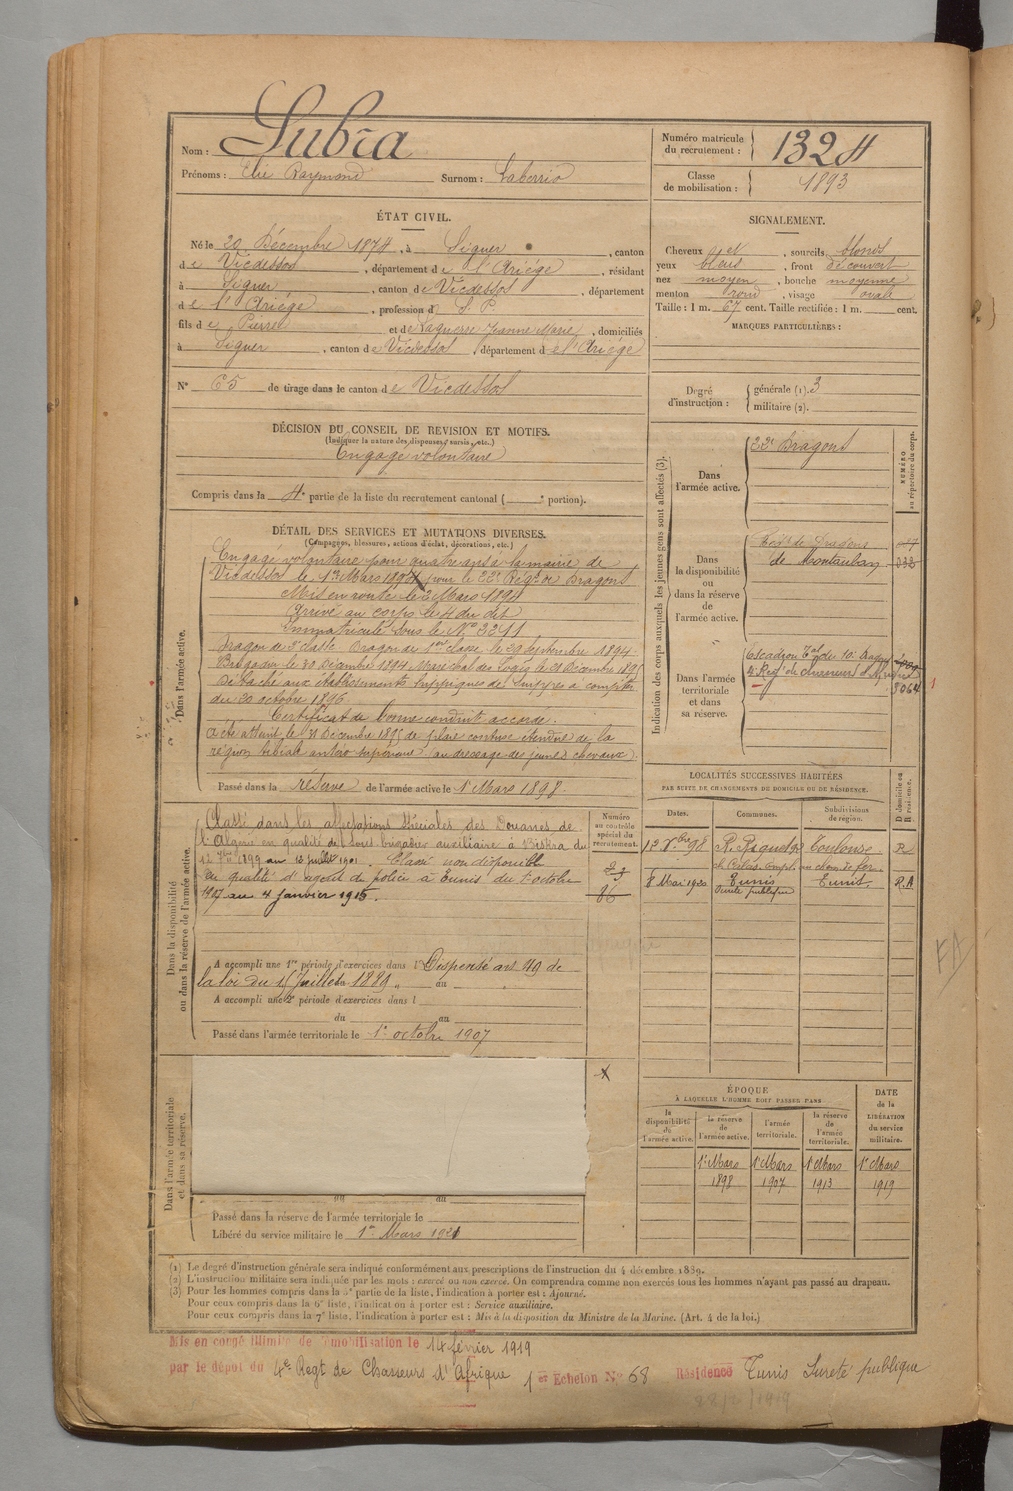 Nom : Lubra
Prénoms : Elie Raymond Surnom : Laberrio
Numéro matricule du recrutement : 1324
Classe de mobilisation : 1893
ÉTAT CIVIL.
Né le 29 Décembre 1874, à Siguer, canton
de Vicdessos, département de l'Ariège, résidant
à Siguer, canton de Vicdessos, département
de l'Ariège, profession d S. P.
fils de Pierre et de Laguerre Jeanne Marie, domiciliés
à Siguer, canton de Vicdessos, département de l'Ariège
N° 65 de tirage dans le canton de Vicdessos
SIGNALEMENT.
Cheveux et, sourcils blonds
yeux bleus, front découvert
nez moyen, bouche moyenne
menton rond, visage ovale
Taille : 1 m. 67 cent. Taille rectifiée : 1 m. cent.
MARQUES PARTICULIÈRES :
Degré d'instruction : générale (1). 3
militaire (2).
DÉCISION DU CONSEIL DE REVISION ET MOTIFS.
(Indiquer la nature des dispenses, sursis, etc.)
Engagé volontaire
Compris dans la 4e partie de la liste du recrutement cantonal ( e portion).
DÉTAIL DES SERVICES ET MUTATIONS DIVERSES.
(Campagnes, blessures, actions d'éclat, décorations, etc.)
Dans l'armée active.
Engagé volontaire pour quatre ans à la mairie de
Vicdessos le 1er Mars 1894 pour le 22e Régt de Dragons
Mis en route le 2 Mars 1894
Arrivé au corps le 4 du dit
Immatriculé sous le N° 2211
Dragon de 2e classe. Dragon de 1ère classe le 29 Septembre 1894.
Brigadier le 30 Décembre 1894. Maréchal des Logis le 21 Décembre 1895
Détaché aux établissements hippiques de Suippes à compter
du 30 octobre 1896
Certificat de bonne conduite accordé.
A été atteint, le 31 Décembre 1895 de plaie contuse étendue de la
région tibiale antéro-supérieure (au dressage des jeunes chevaux).
Passé dans la réserve de l'armée active le 1er Mars 1898.
Indication des corps auxquels les jeunes gens sont affectés (3).
NUMÉRO au répertoire du corps.
Dans l'armée active.
22e Dragons
Dans la disponibilité ou dans la réserve de l'armée active.
Régt de Dragons
de Montauban
Dans l'armée territoriale et dans sa réserve.
Escadron Tal de 10e Dragons
4e Régt de chasseurs d'Afrique
3064
LOCALITÉS SUCCESSIVES HABITÉES
PAR SUITE DE CHANGEMENTS DE DOMICILE OU DE RÉSIDENCE.
Dates. Communes. Subdivisions de région. Domicile ou Résidence.
12 Xbre 98 Toulouse R
8 Mai 1920 Tunis Sureté publique Tunis. R.A
Dans la disponibilité ou dans la réserve de l'armée active.
Numéro au contrôle spécial du recrutement.
Classé dans les affectations spéciales des Douanes de
l'Algérie en qualité de sous brigadier auxiliaire à Biskra du
12 7bre 1899 au 12 juillet 1901. Classé non disponible
en qualité d'agent de police à Tunis du 1er octobre
1907 au 4 janvier 1915.
A accompli une 1re période d'exercices dans l Dispensé art 49 de
la loi du 15 Juillet 1889 au
A accompli une 2e période d'exercices dans l
du au
Passé dans l'armée territoriale le 1er octobre 1907
Dans l'armée territoriale et dans sa réserve.
du au
Passé dans la réserve de l'armée territoriale le
Libéré du service militaire le 1er Mars 1921
ÉPOQUE
À LAQUELLE L'HOMME DOIT PASSER DANS
la disponibilité de l'armée active. la réserve de l'armée active. l'armée territoriale. la réserve de l'armée territoriale.
DATE de la LIBÉRATION du service militaire.
1er Mars 1898 1er Mars 1907 1er Mars 1913 1er Mars 1919
(1) Le degré d'instruction générale sera indiqué conformément aux prescriptions de l'instruction du 4 décembre 1889.
(2) L'instruction militaire sera indiquée par les mots : exercé ou non exercé. On comprendra comme non exercés tous les hommes n'ayant pas passé au drapeau.
(3) Pour les hommes compris dans la 5e partie de la liste, l'indication à porter est : Ajourné.
Pour ceux compris dans la 6e liste, l'indication à porter est : Service auxiliaire.
Pour ceux compris dans la 7e liste, l'indication à porter est : Mis à la disposition du Ministre de la Marine. (Art. 4 de la loi.)
Mis en congé illimité de démobilisation le 14 février 1919
par le dépôt du 4e Regt de Chasseurs d'Afrique 1er Echelon N° 68 Résidence Tunis Sureté publique